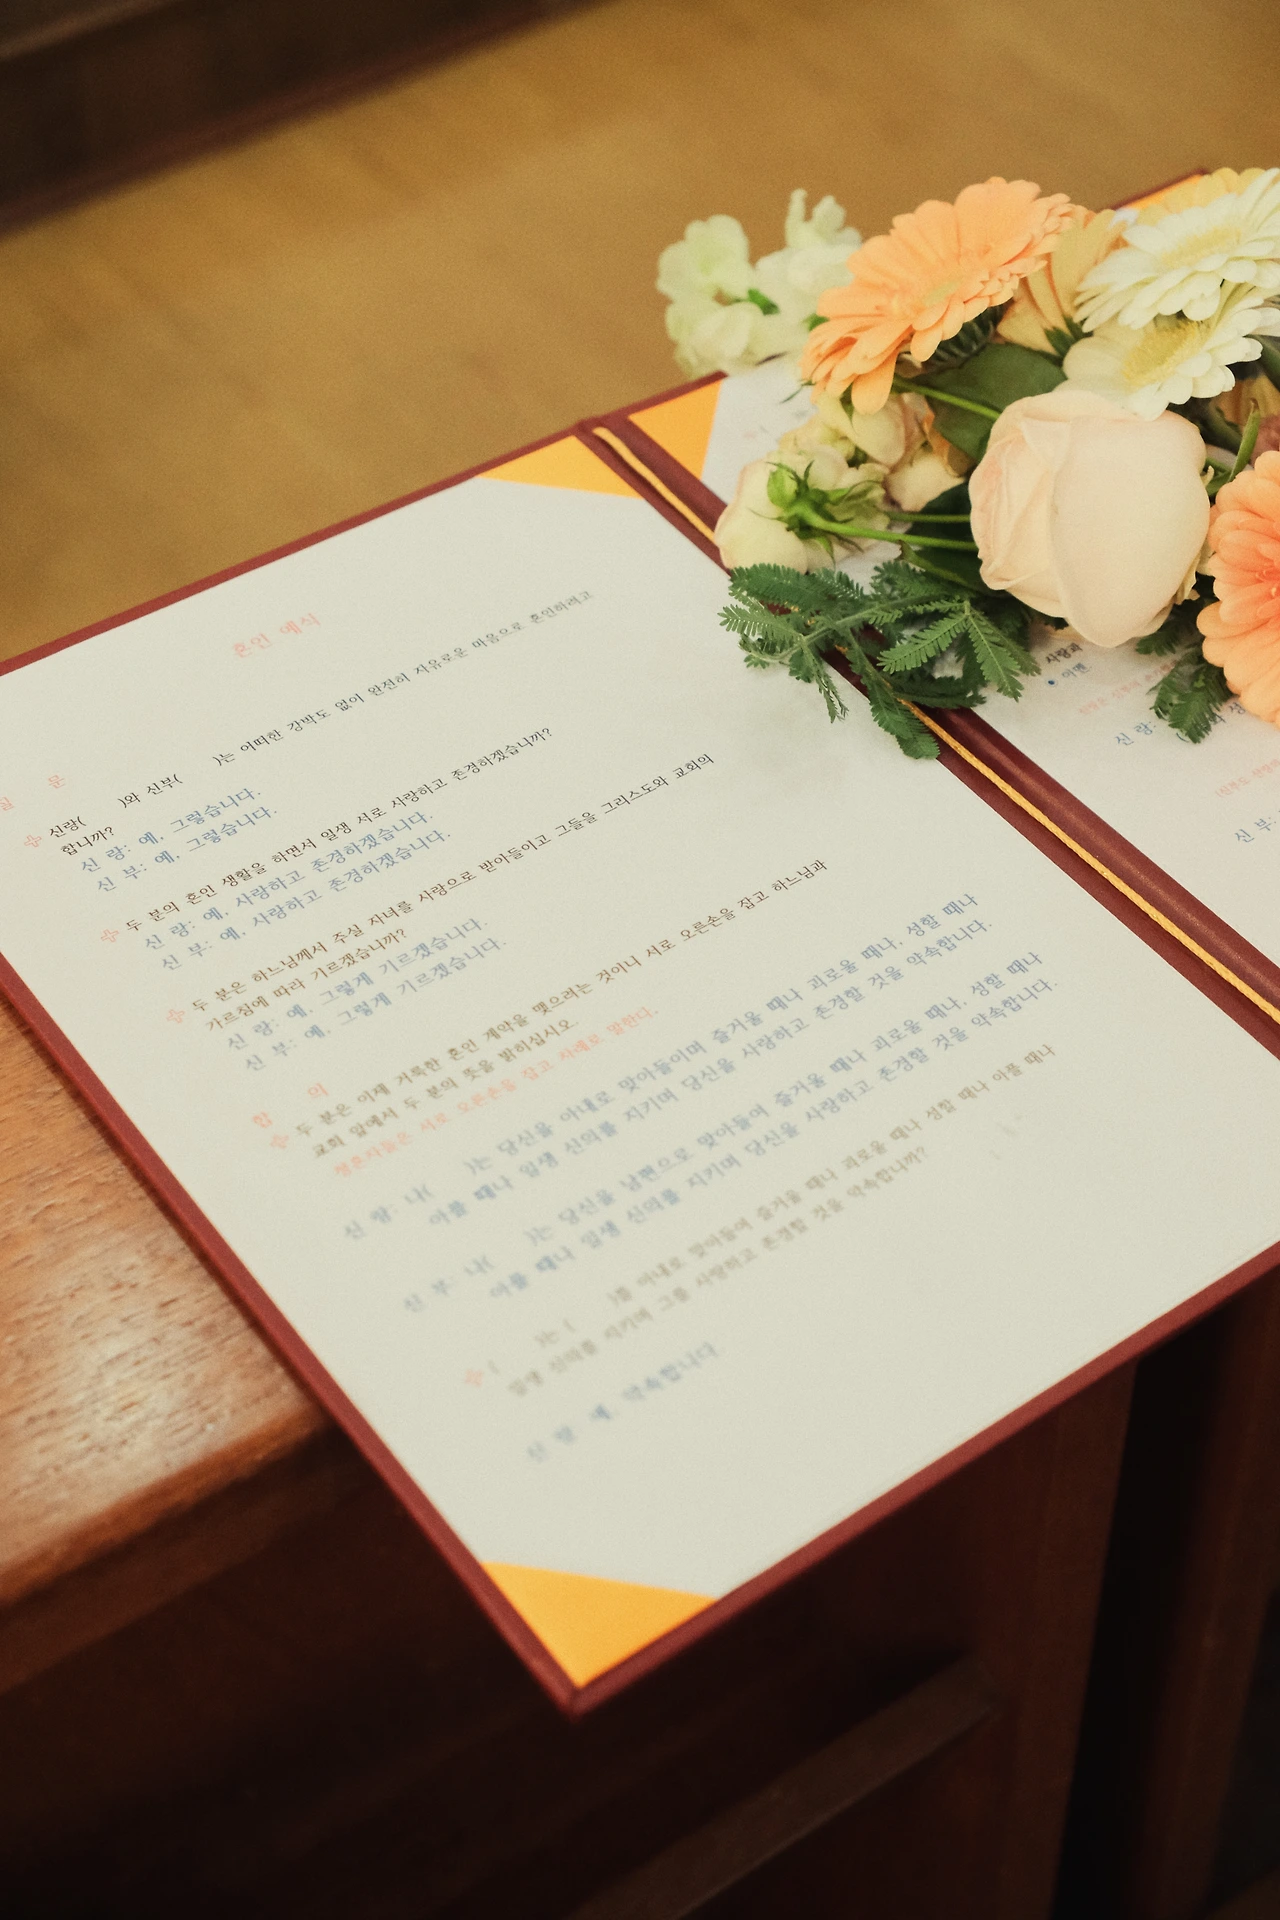 혼인 예식
질 문
신랑( )와 신부( )는 어떠한 강박도 없이 완전히 자유로운 마음으로 혼인하려고
합니까?
신 랑: 예, 그렇습니다.
신 부: 예, 그렇습니다.
두 분의 혼인 생활을 하면서 일생 서로 사랑하고 존경하겠습니까?
신 랑: 예, 사랑하고 존경하겠습니다.
신 부: 예, 사랑하고 존경하겠습니다.
두 분은 하느님께서 주실 자녀를 사랑으로 받아들이고 그들을 그리스도와 교회의
가르침에 따라 기르겠습니까?
신 랑: 예, 그렇게 기르겠습니다.
신 부: 예, 그렇게 기르겠습니다.
합 의
두 분은 이제 거룩한 혼인 계약을 맺으려는 것이니 서로 오른손을 잡고 하느님과
교회 앞에서 두 분의 뜻을 밝히십시오.
서로 오른손을 잡고 차례로 말한다.
신 랑: 나( )는 당신을 아내로 맞아들이며 즐거울 때나 괴로울 때나, 성할 때나
아플 때나 일생 신의를 지키며 당신을 사랑하고 존경할 것을 약속합니다.
신 부: 나( )는 당신을 남편으로 맞아들여 즐거울 때나 괴로울 때나, 성할 때나
아플 때나 일생 신의를 지키며 당신을 사랑하고 존경할 것을 약속합니다.
( )는 ( )를 아내로 맞아들여 즐거울 때나 괴로울 때나 성할 때나 아플 때나
일생 신의를 지키며 그를 사랑하고 존경할 것을 약속합니까?
신 랑: 예, 약속합니다.
사랑과
아멘
신 랑:
신 부: